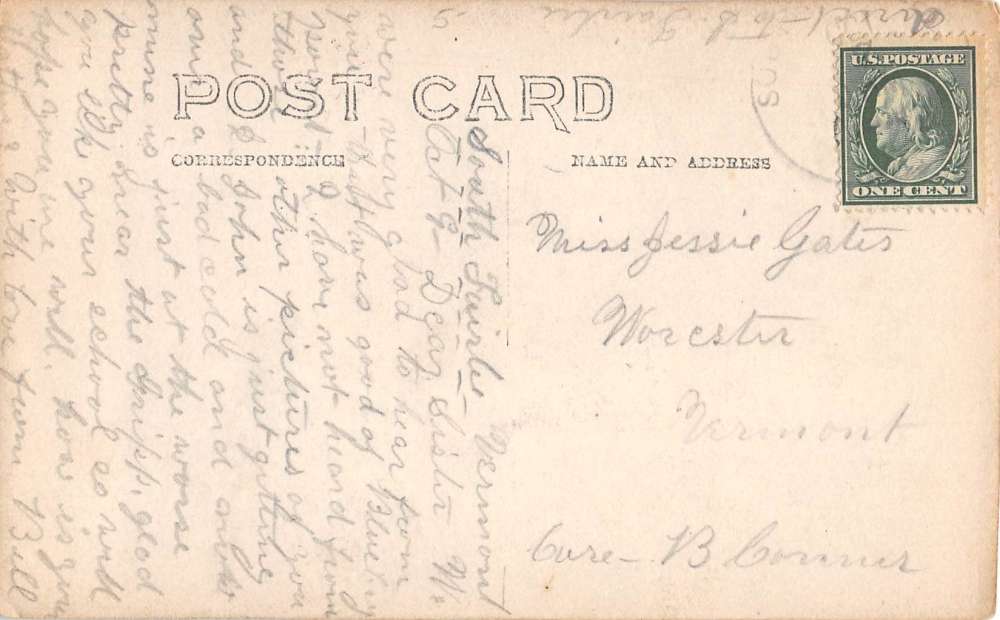 POST CARD
CORRESPONDENCE
NAME AND ADDRESS
U.S. POSTAGE
ONE CENT
Miss Jessie Gates
Worcester
Vermont
Care - B Conner
South Fairlee - Vermont
Oct 9 - Dear Sister We
were very glad to hear from
you - good of
I have not heard from
those other pictures of you
and I John is just getting
over a bad cold and
mine is just at the worse
pretty near the Gripp, glad
you like your school so well
hope you are well. how is your
with love from Bill